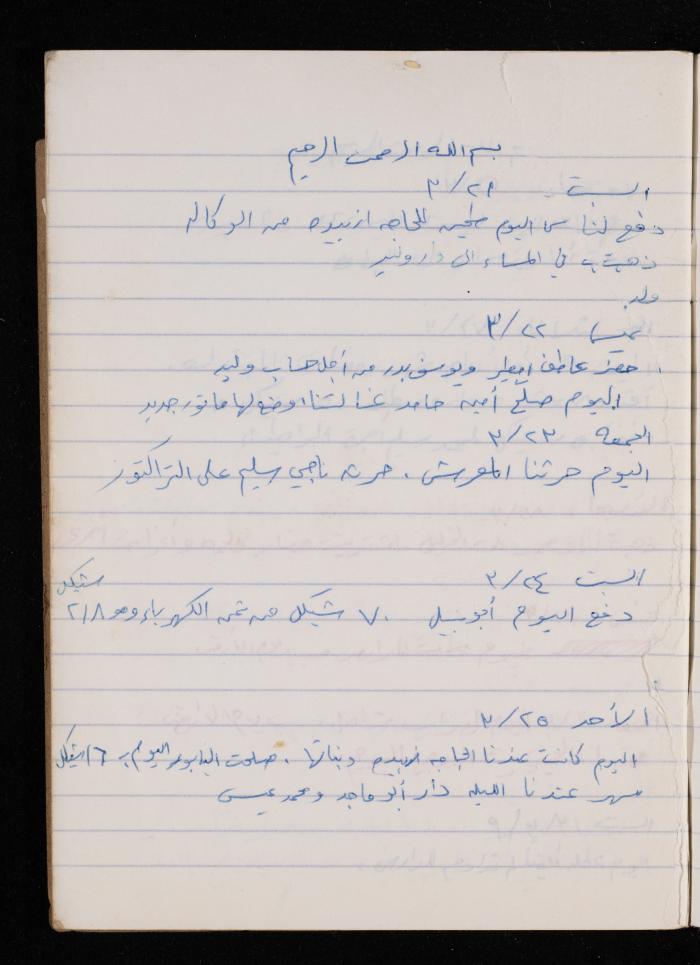 بسم الله الرحمن الرحيم
السبت ٣/٢١
دفع لنا اليوم طحين للحاجه ازبيده من الوكاله
ذهبت في المساء الى دار وليد
ولد
خميس ٣/٢٢
حضر عاطف امطير ويوسف بدر من أجل حساب وليد
اليوم صلح أمين حامد غسالتنا اوضع لها ماتور جديد
الجمعه ٣/٢٣
اليوم حرثنا المعرش . حرثه ناجي سليم على التراكتور
السبت ٣/٢٤
دفع اليوم أبو نبيل ٧٠ شيكل من ثمن الكهرباء وهو ٢١٨ شيكل
الأحد ٣/٢٥
اليوم كانت عندنا الحاجه ازبيده وبناتها . صلحت البابور اليوم بـ ١٦ شيكل
سهر عندنا الليله دار أبو ماجد ومحمد عيسى